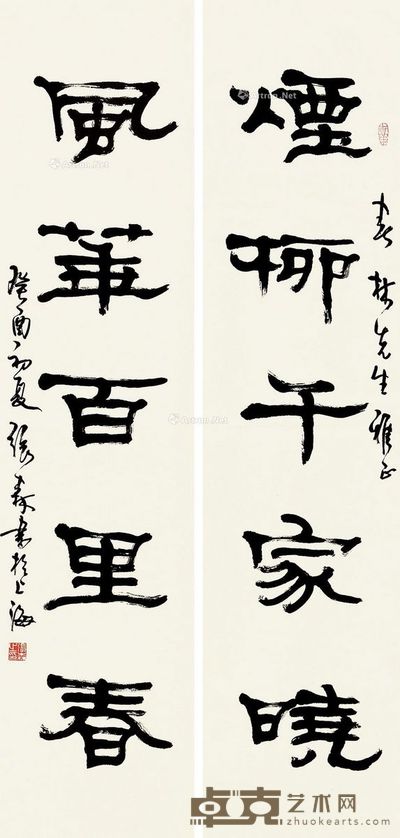 煙柳千家曉
春林先生雅正
風華百里春
癸酉初夏張森書於上海
卓克艺术网
zhuokearts.com
Artron.Net